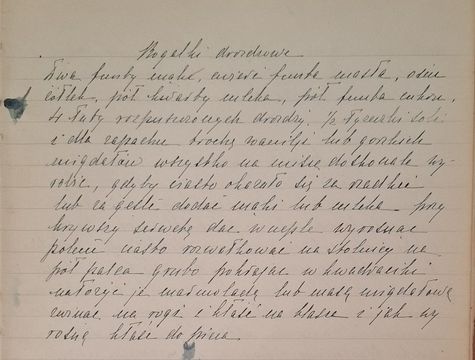 Rogalki drozdzowe
Dwa funty mąki, ćwierć funta masła, osim
żółtek, pół kwarty mleka, pół funta cukru,
4 łuty rozpuszczonych drozdzy, ½ łyżeczki soli
i dla zapachu trochę wanilji lub gorzkich
migdałów wszystko na misie doskonale wy-
robić, gdyby ciasto okazało się za rzadkie
lub za gęste dodać mąki lub mleka przy
krywszy serwetą dać w ciepłe wyrosnąć
potem ciasto rozwałkować na stolnicy na
pół palca grubo pokrajać w kwadraciki
nałożyć je marmoladą lub masą migdałową
zwinąć na rogi i kłaść na blasze i jak wy
rosną kłaść do pieca.